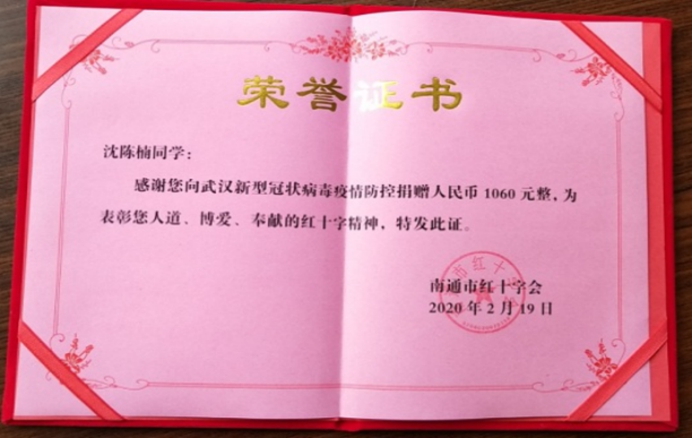 荣誉证书
沈陈楠同学：
感谢您向武汉新型冠状病毒疫情防控捐赠人民币 1060 元整，为
表彰您人道、博爱、奉献的红十字精神，特发此证。
南通市红十字会
2020 年 2 月 19 日